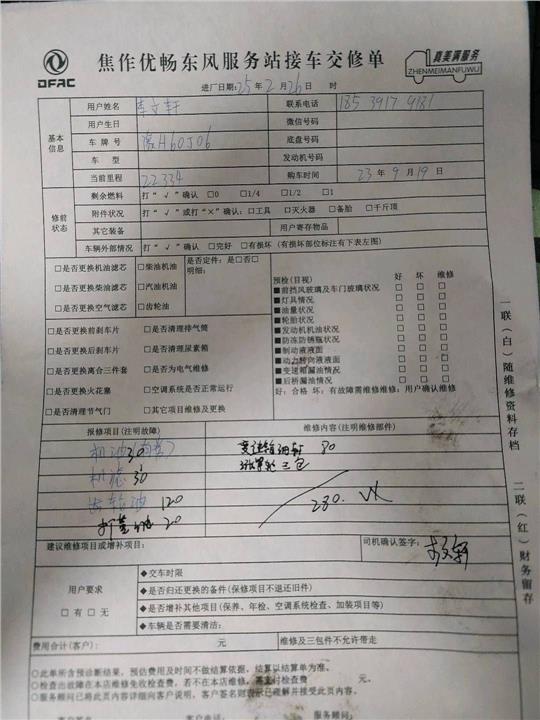 DFAC
焦作优畅东风服务站接车交修单
真美满服务
ZHENMEIMANFUWU
进厂日期:25 年 2 月 26 日 时
基本信息
用户姓名 李文轩 联系电话 185 3917 9181
用户生日 微信号码
车 牌 号 豫H60J06 底盘号码
车 型 发动机号码
当前里程 22334 购车时间 23 年 9 月 19 日
修前状态
剩余燃料 打“ √ ”确认 □0 □1/4 □1/2 □1
附件状况 打“ √ ”或打“×”确认: □工具 □灭火器 □备胎 □千斤顶
其它装备 用户寄存物品
车辆外部情况 打“ √ ”确认 □完好 □有损坏 (有损坏部位标注有下表左图)
□是否更换机油滤芯 □柴油机油 是否定件: 是□否□
□是否更换柴油滤芯 □汽油机油 明细:
□是否更换空气滤芯 □齿轮油
预检(目视) 好 坏 维修
■前挡风玻璃及车门玻璃状况 □ □ □
■灯具情况 □ □ □
■油量状况 □ □ □
■轮胎状况 □ □ □
■发动机机油状况 □ □ □
■防冻防锈瓶状况 □ □ □
■制动液液面 □ □ □
■动力转向液液面 □ □ □
■变速箱漏油情况 □ □ □
■后桥漏油情况 □ □ □
好: 合格 坏: 有故障需维修维修: 用户确认维修
□是否更换前刹车片 □是否清理排气筒
□是否更换后刹车片 □是否清理尿素箱
□是否更换离合三件套 □是否为电气维修
□是否更换火花塞 □空调系统是否正常运行
□是否清理节气门 □其它项目维修及更换
报修项目(注明故障) 维修内容(注明维修部件)
机油30 变速箱油封 80
机滤 30 三包
齿轮油 120
20
280.
建议维修项目或增补项目: 司机确认签字: 李文轩
用户要求
□ 有 □ 无
◆交车时限
◆是否归还更换的备件(保修项目不退还旧件)
◆是否增补其他项目(保养、年检、空调系统检查、加装项目等)
◆车辆是否需要清洁:
费用合计(客户): 元 维修及三包件不允许带走
○此单所含预诊断结果, 预估费用及时间不做结算依据, 结算以结算单为准。
○检查出故障在本店维修免收检查费, 若不在本店维修, 需支付检查费 元。
○服务顾问已将此页内容详细向客户说明, 客户签名则表示已理解并接受此页内容。
客户签名: 客户电话: 服务顾问:
一联(白)随维修资料存档
二联(红)财务留存